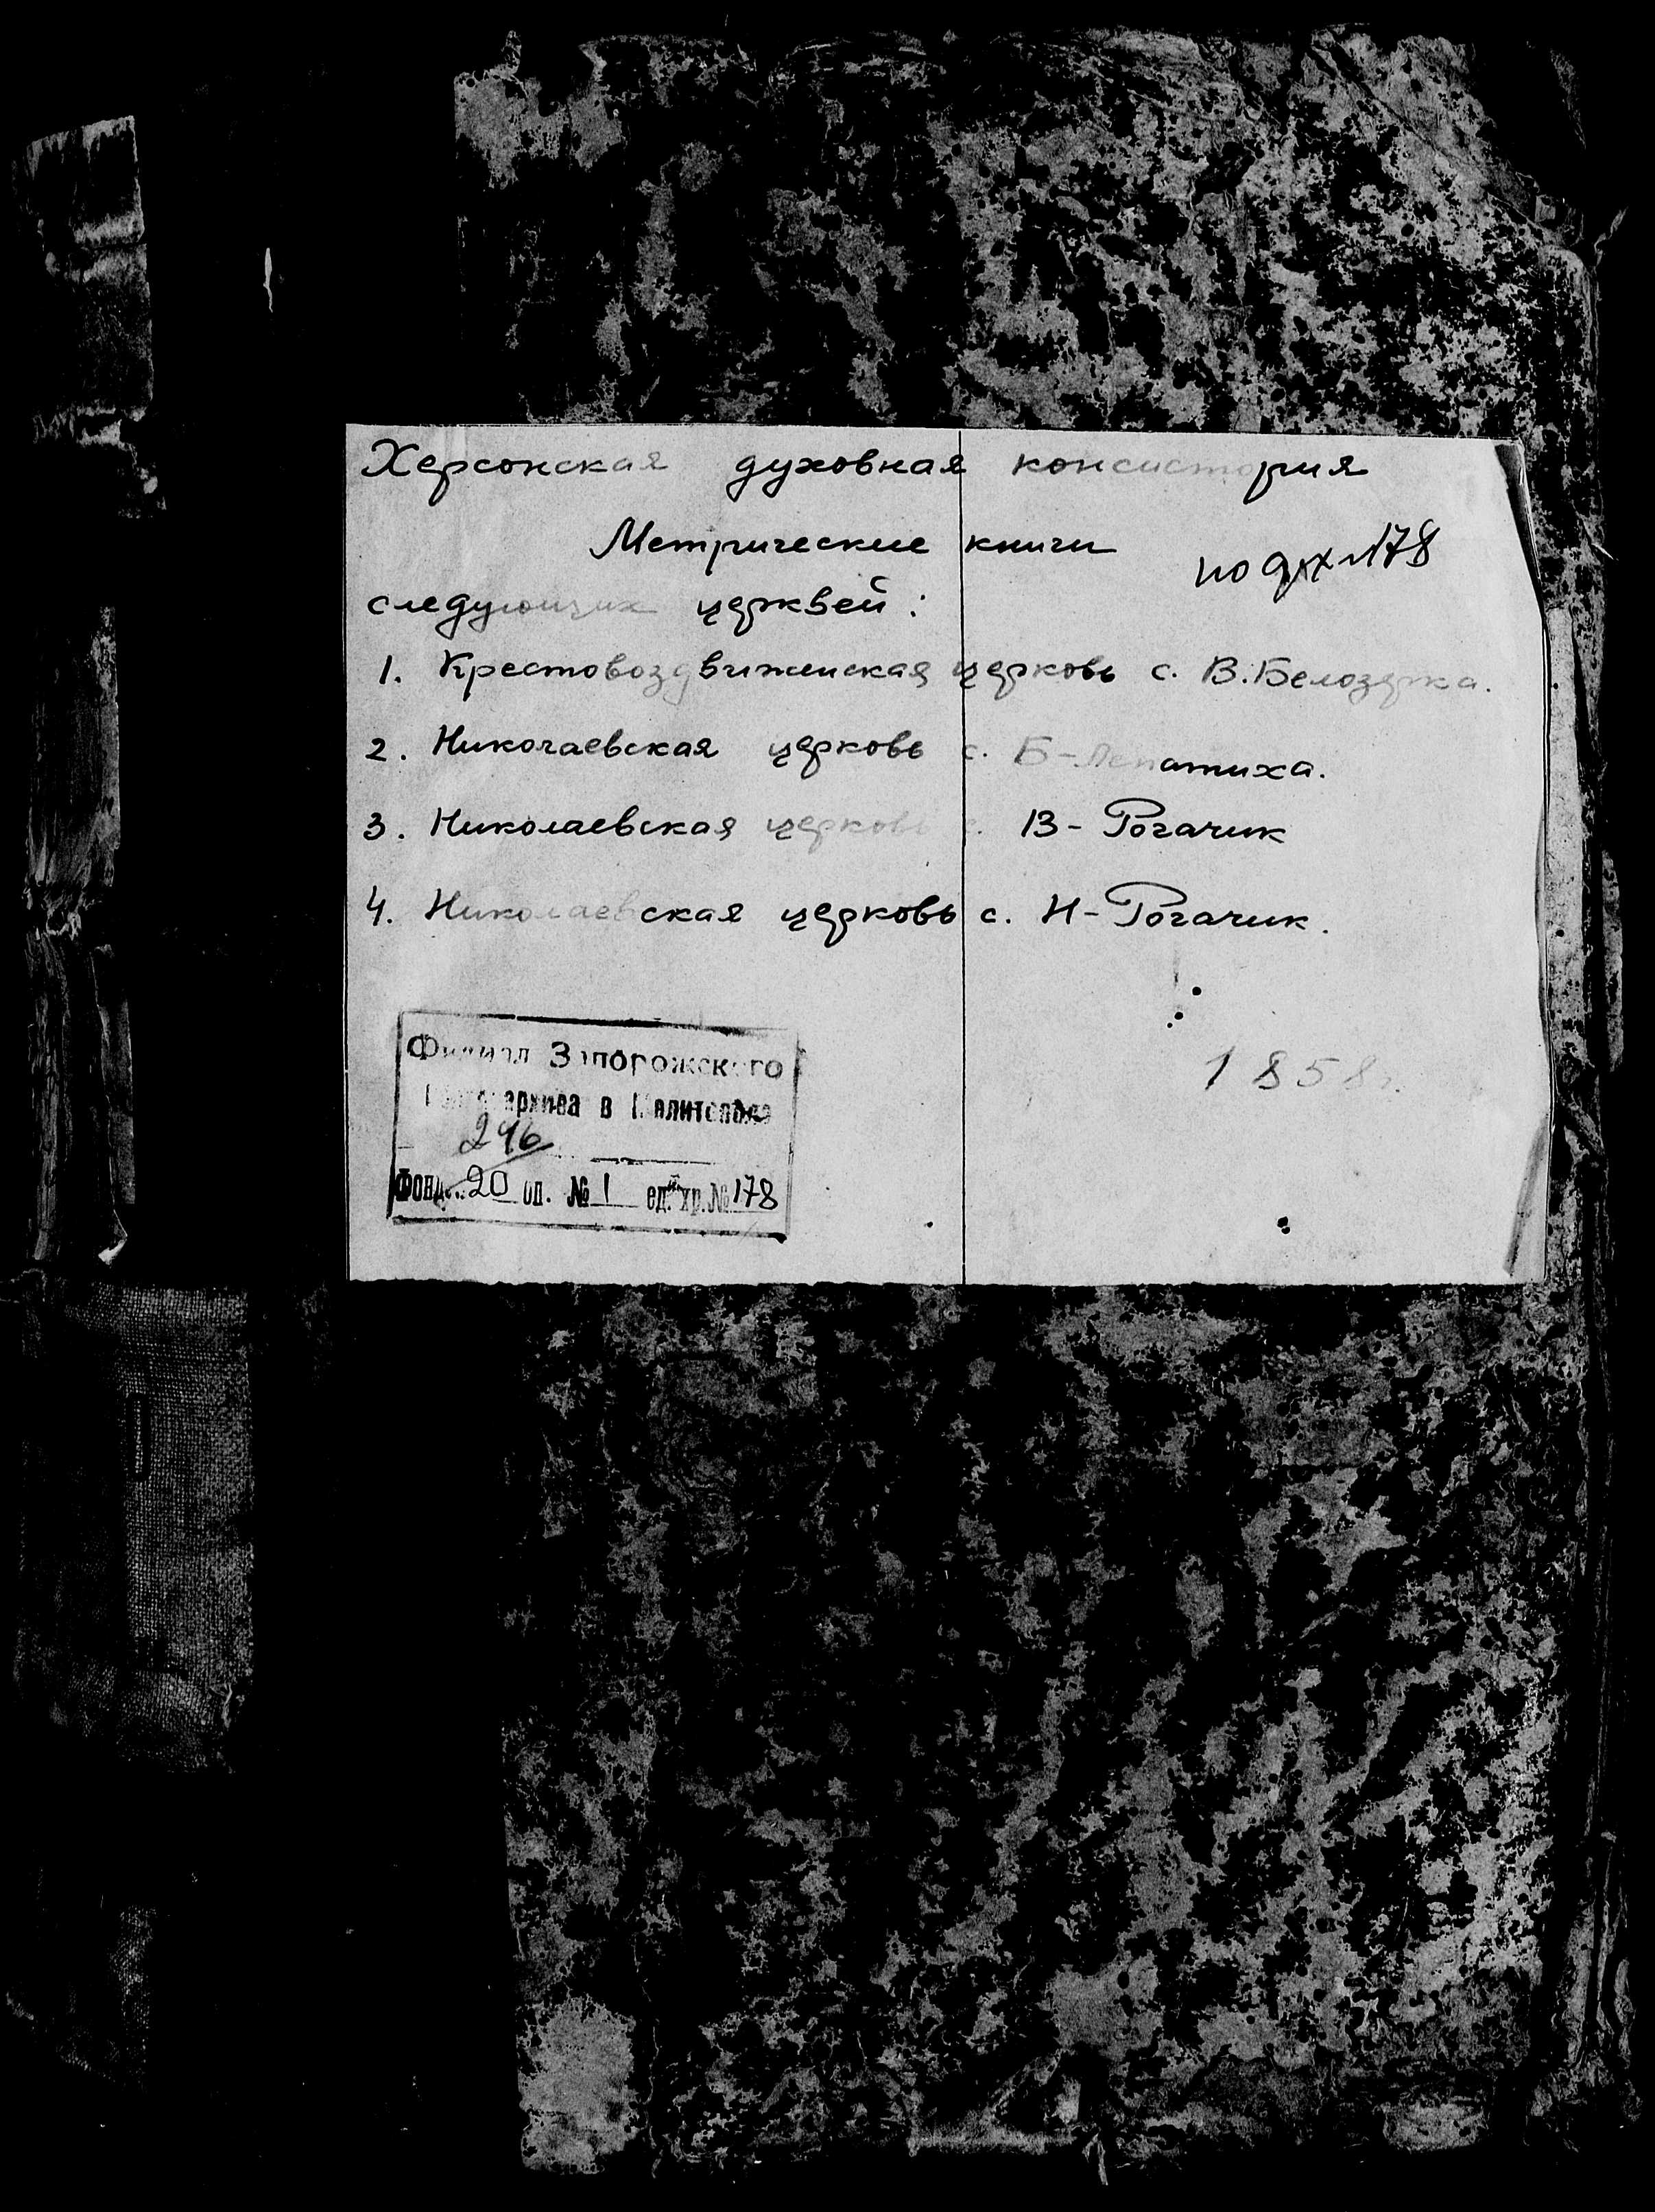 Херсонская духовная консистория
Метрические книги
по 178
следующих церквей:
1. Крестовоздвиженская церковь с. В.Белозерка.
2. Николаевская церковь с. Б-Лепатиха.
3. Николаевская церковь с. В-Рогачик
4. Николаевская церковь с. Н-Рогачик.
1858г.
Филиал Запорожского
архива в Мелитополе
296
Фонд 20 оп. № 1 ед. хр. № 178